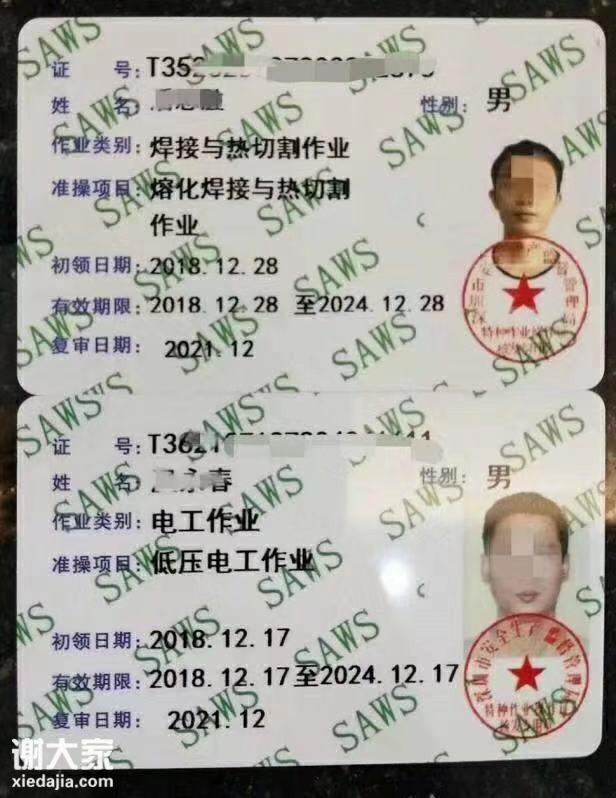 SAWS
证 号:
性别: 男
作业类别: 焊接与热切割作业
准操项目: 熔化焊接与热切割
作业
初领日期: 2018.12.28
有效期限: 2018.12.28 至2024.12.28
复审日期: 2021.12
特种作业
证 号:
姓 名: 永春
性别: 男
作业类别: 电工作业
准操项目: 低压电工作业
初领日期: 2018.12.17
有效期限: 2018.12.17至2024.12.17
复审日期: 2021.12
深圳市安全生产监督管理局
特种作业
谢大家
xiedajia.com